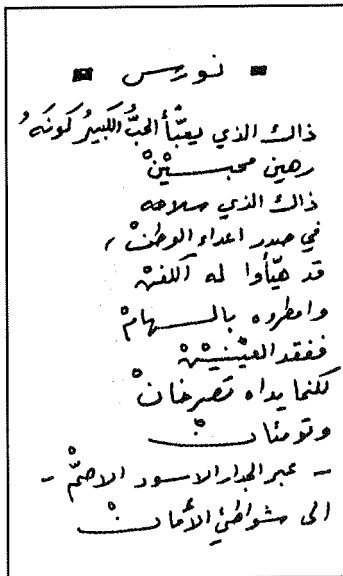 نورس
ذاك الذي يعبّأ الحبُّ الكبيرُ كونَهُ
رهين محبسيْنْ
ذاك الذي سلاحه
في صدر اعداء الوطنْ ،
قد هيّأوا له الكفنْ
وامطروه بالسهامْ
ففقد العيْنيْنْ
لكنما يداه تصرخانْ
وتومئانْ
- عبر الجدار الاسود الاصمّْ -
الى شواطئ الأمانْ